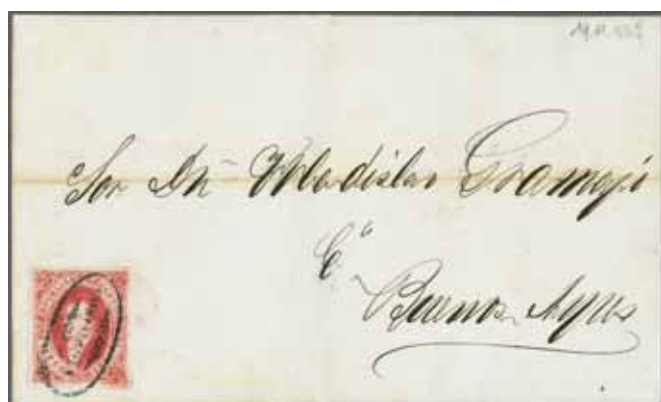 Sor Dn Wladislao Gramajo
C.a
Buenos Ayres